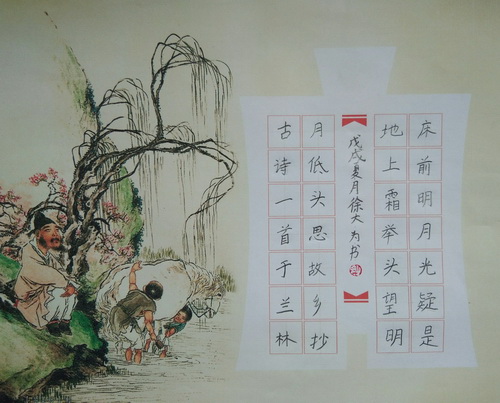 床前明月光疑是
地上霜举头望明
戊戌夏月徐大为书
月低头思故乡抄
古诗一首于兰林